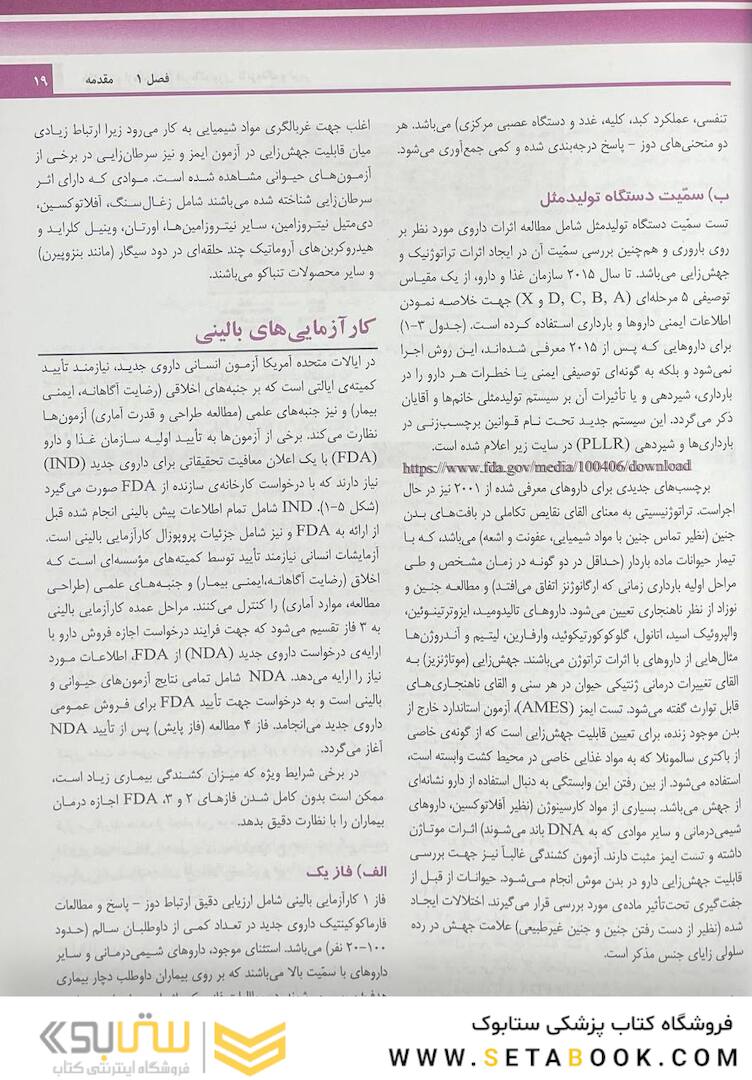 فصل ۱ مقدمه ۱۹
تنفسی، عملکرد کبد، کلیه، غدد و دستگاه عصبی مرکزی) می‌باشد. هر
دو منحنی‌های دوز – پاسخ درجه‌بندی شده و کمی جمع‌آوری می‌شود.
ب) سمّیت دستگاه تولیدمثل
تست سمّیت دستگاه تولیدمثل شامل مطالعه اثرات داروی مورد نظر بر
روی باروری و هم‌چنین بررسی سمّیت آن در ایجاد اثرات تراتوژنیک و
جهش‌زایی می‌باشد. تا سال ۲۰۱۵ سازمان غذا و دارو، از یک مقیاس
توصیفی ۵ مرحله‌ای (D, C, B, A و X) جهت خلاصه نمودن
اطلاعات ایمنی داروها و بارداری استفاده کرده است. (جدول ۳–۱)
برای داروهایی که پس از ۲۰۱۵ معرفی شده‌اند، این روش اجرا
نمی‌شود و بلکه به گونه‌ای توصیفی ایمنی یا خطرات هر دارو را در
بارداری، شیردهی و یا تأثیرات آن بر سیستم تولیدمثلی خانم‌ها و آقایان
ذکر می‌گردد. این سیستم جدید تحت نام قوانین برچسب‌زنی در
بارداری‌ها و شیردهی (PLLR) در سایت زیر اعلام شده است.
https://www.fda.gov/media/100406/download
برچسب‌های جدیدی برای داروهای معرفی شده از ۲۰۰۱ نیز در حال
اجراست. تراتوژنیسیتی به معنای القای نقایص تکاملی در بافت‌های بدن
جنین (نظیر تماس جنین با مواد شیمیایی، عفونت و اشعه) می‌باشد، که با
تیمار حیوانات ماده باردار (حداقل در دو گونه در زمان مشخص و طی
مراحل اولیه بارداری زمانی که ارگانوژنز اتفاق می‌افتد) و مطالعه جنین و
نوزاد از نظر ناهنجاری تعیین می‌شود. داروهای تالیدومید، ایزوترتینوئین،
والپروئیک اسید، اتانول، گلوکوکورتیکوئید، وارفارین، لیتیم و آندروژن‌ها
مثال‌هایی از داروهای با اثرات تراتوژن می‌باشند. جهش‌زایی (موتاژنزیز) به
القای تغییرات درمانی ژنتیکی حیوان در هر سنی و القای ناهنجاری‌های
قابل توارث گفته می‌شود. تست ایمز (AMES)، آزمون استاندارد خارج از
بدن موجود زنده، برای تعیین قابلیت جهش‌زایی است که از گونه‌ی خاصی
از باکتری سالمونلا که به مواد غذایی خاصی در محیط کشت وابسته است،
استفاده می‌شود. از بین رفتن این وابستگی به دنبال استفاده از دارو نشانه‌ای
از جهش می‌باشد. بسیاری از مواد کارسینوژن (نظیر آفلاتوکسین، داروهای
شیمی‌درمانی و سایر موادی که به DNA باند می‌شوند) اثرات موتاژن
داشته و تست ایمز مثبت دارند. آزمون کشندگی غالباً نیز جهت بررسی
قابلیت جهش‌زایی دارو در بدن موش انجام می‌شود. حیوانات از قبل از
جفت‌گیری تحت‌تأثیر ماده‌ی مورد بررسی قرار می‌گیرند. اختلالات ایجاد
شده (نظیر از دست رفتن جنین و جنین غیرطبیعی) علامت جهش در رده
سلولی زایای جنس مذکر است.
اغلب جهت غربالگری مواد شیمیایی به کار می‌رود زیرا ارتباط زیادی
میان قابلیت جهش‌زایی در آزمون ایمز و نیز سرطان‌زایی در برخی از
آزمون‌های حیوانی مشاهده شده است. موادی که دارای اثر
سرطان‌زایی شناخته شده می‌باشند شامل زغال‌سنگ، آفلاتوکسین،
دی‌متیل نیتروزامین، سایر نیتروزامین‌ها، اورتان، وینیل کلراید و
هیدروکربن‌های آروماتیک چند حلقه‌ای در دود سیگار (مانند بنزوپیرن)
و سایر محصولات تنباکو می‌باشند.
کارآزمایی‌های بالینی
در ایالات متحده آمریکا آزمون انسانی داروی جدید، نیازمند تأیید
کمیته‌ی ایالتی است که بر جنبه‌های اخلاقی (رضایت آگاهانه، ایمنی
بیمار) و نیز جنبه‌های علمی (مطالعه طراحی و قدرت آماری) آزمون‌ها
نظارت می‌کند. برخی از آزمون‌ها به تأیید اولیه سازمان غذا و دارو
(FDA) با یک اعلان معافیت تحقیقاتی برای داروی جدید (IND)
نیاز دارند که با درخواست کارخانه‌ی سازنده از FDA صورت می‌گیرد
(شکل ۵–۱). IND شامل تمام اطلاعات پیش بالینی انجام شده قبل
از ارائه به FDA و نیز شامل جزئیات پروپوزال کارآزمایی بالینی است.
آزمایشات انسانی نیازمند تأیید توسط کمیته‌های مؤسسه‌ای است که
اخلاق (رضایت آگاهانه،ایمنی بیمار) و جنبه‌های علمی (طراحی
مطالعه، موارد آماری) را کنترل می‌کنند. مراحل عمده کارآزمایی بالینی
به ۳ فاز تقسیم می‌شود که جهت فرایند درخواست اجازه فروش دارو با
ارایه‌ی درخواست داروی جدید (NDA) از FDA، اطلاعات مورد
نیاز را ارایه می‌دهد. NDA شامل تمامی نتایج آزمون‌های حیوانی و
بالینی است و به درخواست جهت تأیید FDA برای فروش عمومی
داروی جدید می‌انجامد. فاز ۴ مطالعه (فاز پایش) پس از تأیید NDA
آغاز می‌گردد.
در برخی شرایط ویژه که میزان کشندگی بیماری زیاد است،
ممکن است بدون کامل شدن فازهای ۲ و ۳، FDA اجازه درمان
بیماران را با نظارت دقیق بدهد.
الف) فاز یک
فاز ۱ کارآزمایی بالینی شامل ارزیابی دقیق ارتباط دوز – پاسخ و مطالعات
فارماکوکینتیک داروی جدید در تعداد کمی از داوطلبان سالم (حدود
۱۰۰–۲۰ نفر) می‌باشد. استثنای موجود، داروهای شیمی‌درمانی و سایر
داروهای با سمّیت بالا می‌باشند که بر روی بیماران داوطلب دچار بیماری
فروشگاه کتاب پزشکی ستابوک
WWW.SETABOOK.COM
ستابوک
فروشگاه اینترنتی کتاب